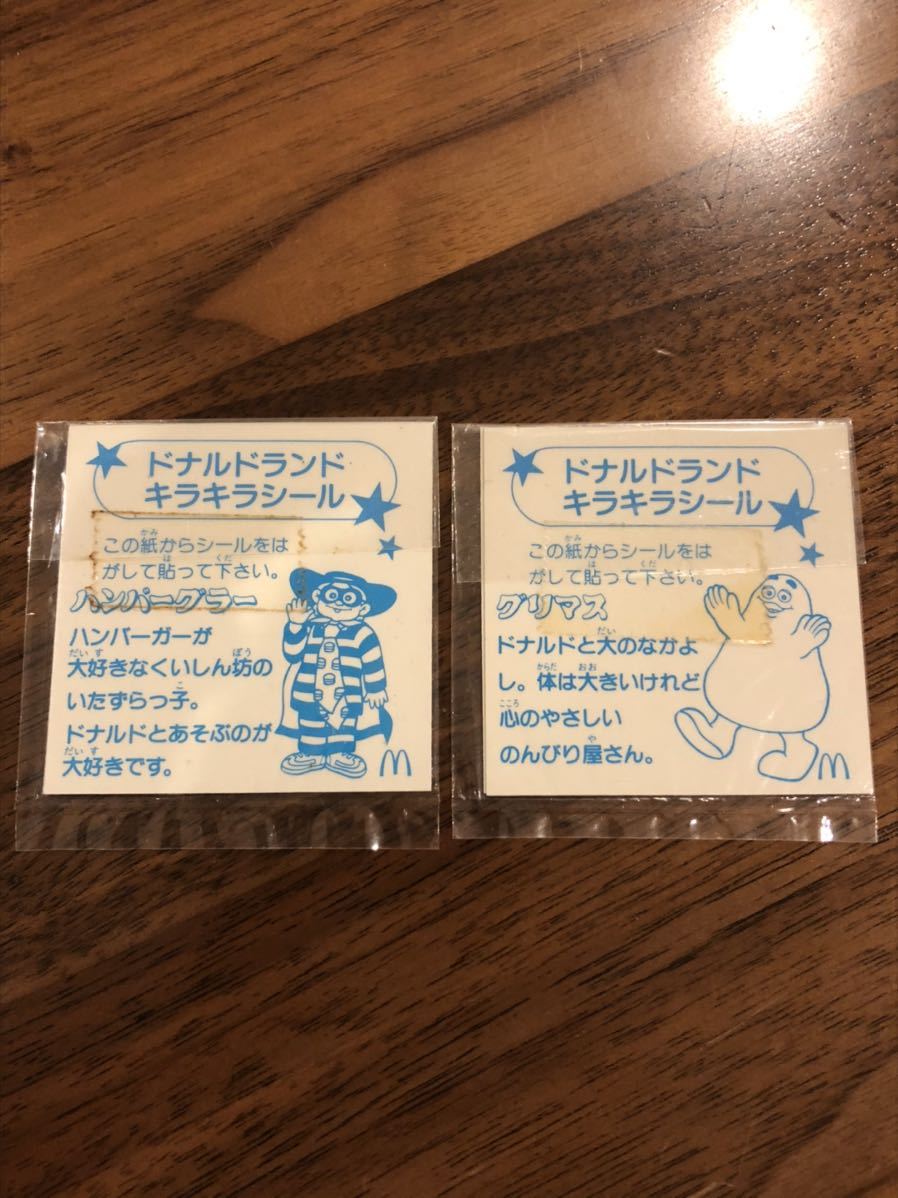 ドナルドランド
キラキラシール
この紙からシールをは
がして貼って下さい。
ハンバーグラー
ハンバーガーが
大好きなくいしん坊の
いたずらっ子。
ドナルドとあそぶのが
大好きです。
ドナルドランド
キラキラシール
この紙からシールをは
がして貼って下さい。
グリマス
ドナルドと大のなかよ
し。体は大きいけれど
心のやさしい
のんびり屋さん。